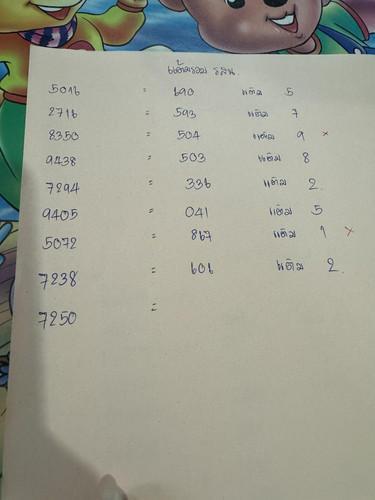 แต้มรวม รลิน.
5016 = 690 แต้ม 5
2716 = 593 แต้ม 7
8350 = 504 แต้ม 9 ×
9438 = 503 แต้ม 8
7294 = 336 แต้ม 2.
9405 = 041 แต้ม 5
5072 = 867 แต้ม 1 ×
7238 = 606 แต้ม 2.
7250 =